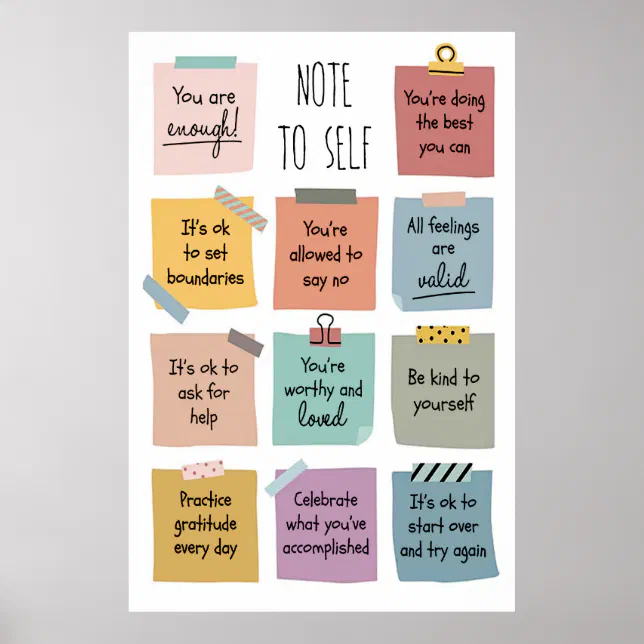 NOTE
TO SELF
You are
enough!
You're doing
the best
you can
It's ok
to set
boundaries
You're
allowed to
say no
All feelings
are
valid
It's ok to
ask for
help
You're
worthy and
loved
Be kind to
yourself
Practice
gratitude
every day
Celebrate
what you've
accomplished
It's ok to
start over
and try again